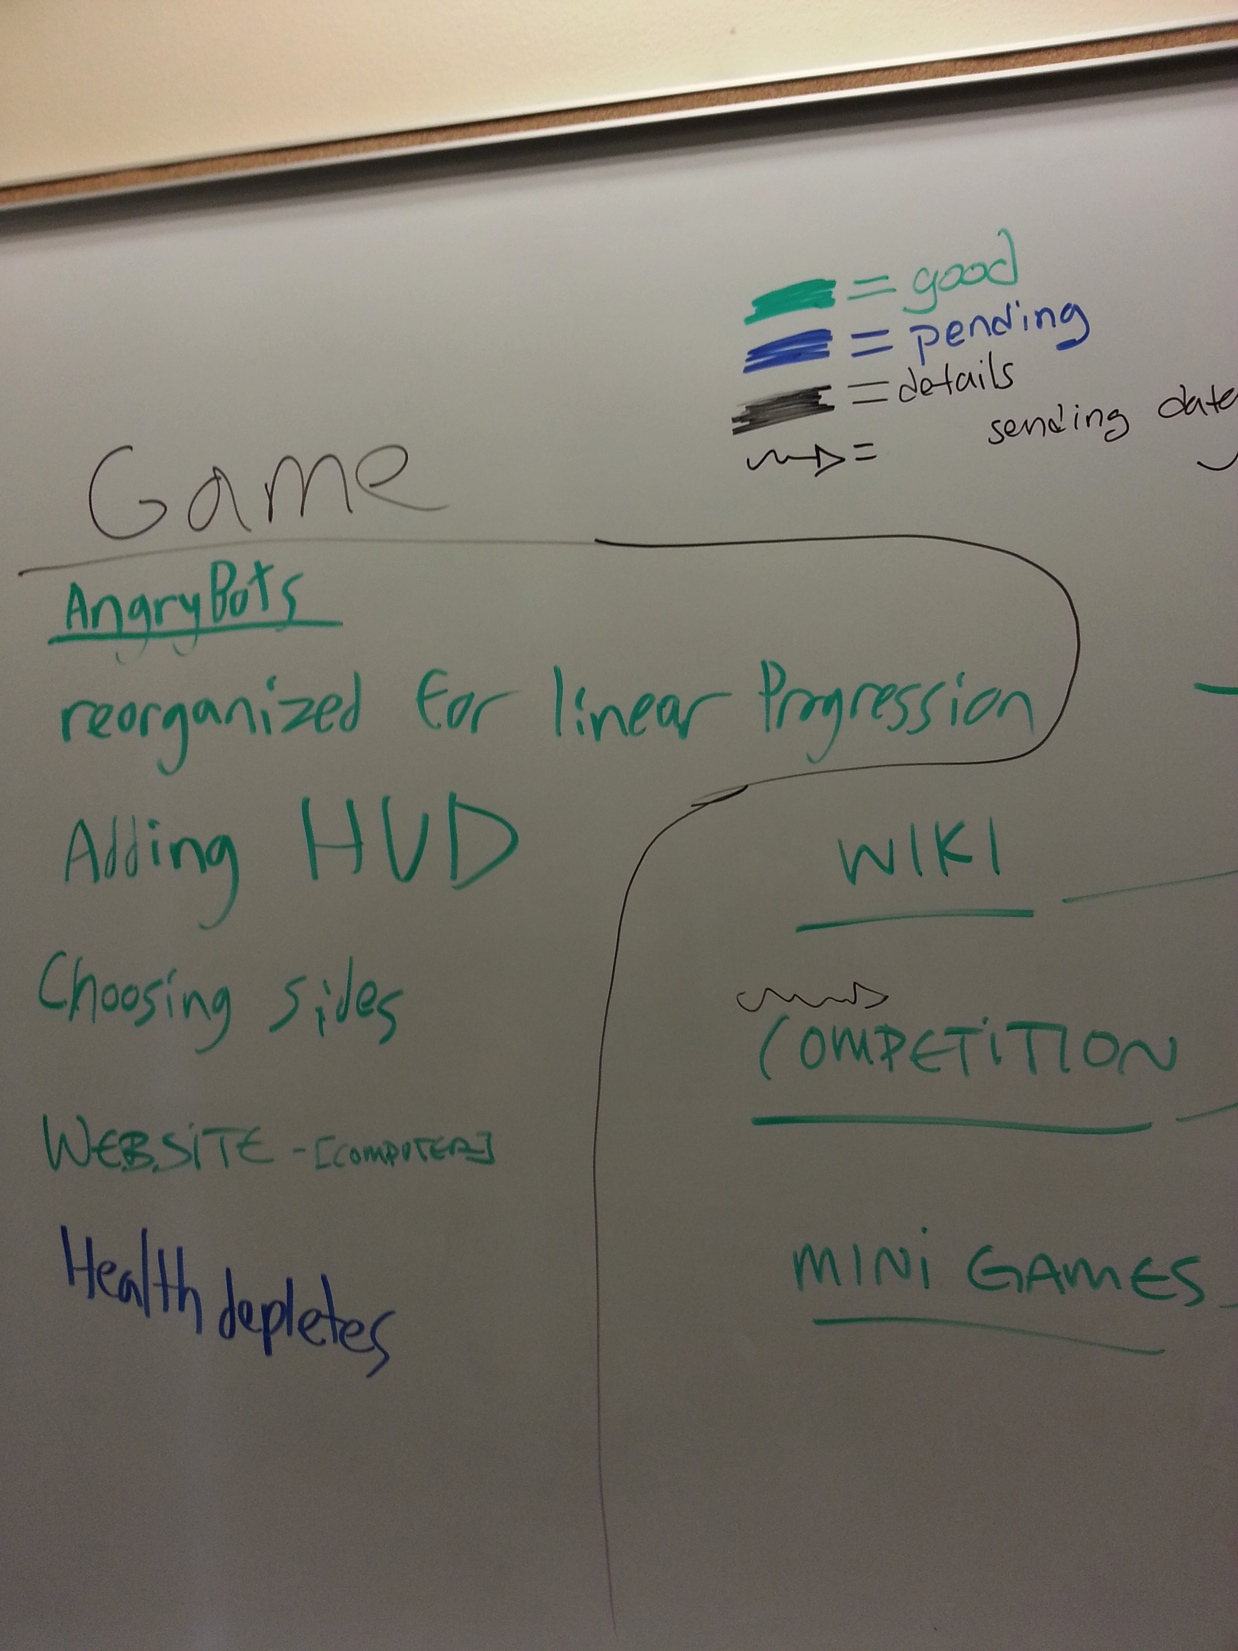 = good
= pending
= details
= sending data
Game
AngryBots
reorganized for linear Progression
Adding HUD
Choosing sides
WEBSITE - [COMPUTER]
Health depletes
WIKI
COMPETITION
MINI GAMES